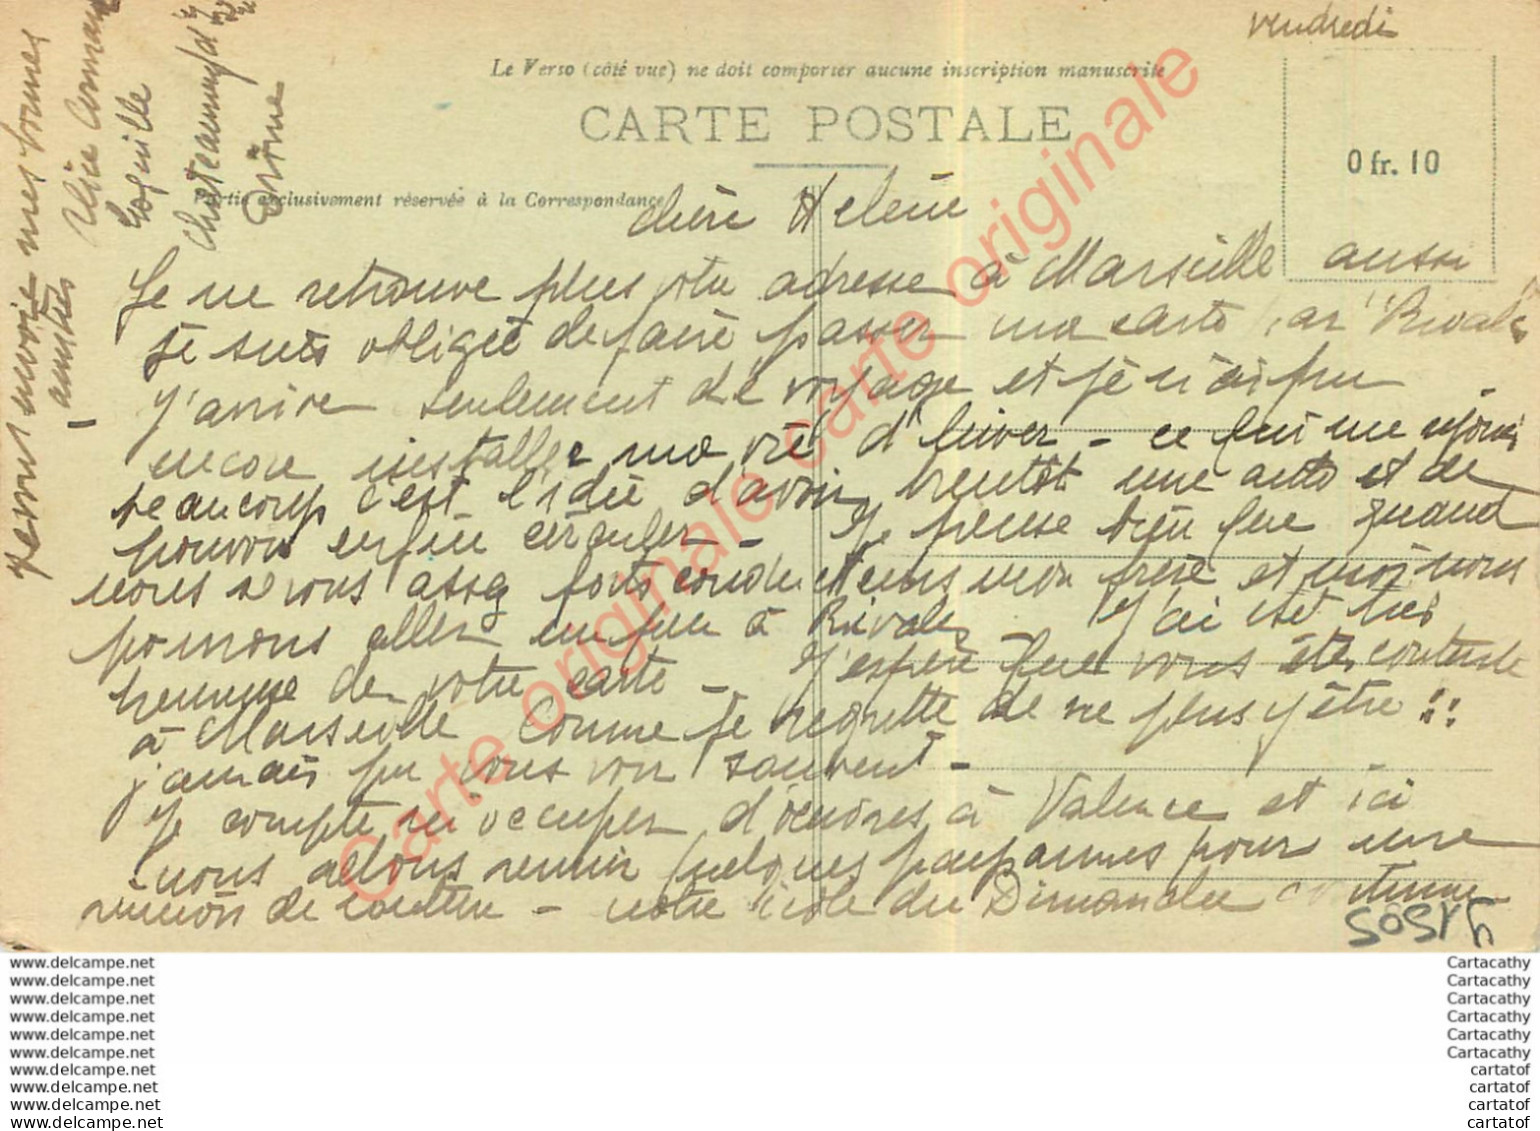 vendredi
Le Verso (côté vue) ne doit comporter aucune inscription manuscrite
CARTE POSTALE
0 fr. 10
Partie exclusivement réservée à la Correspondance
chère Helène
Je ne retrouve plus votre adresse à Marseille aussi
je suis obligée de faire passer ma carte par "Rivales
J'arrive seulement de voyage et je n'ai pu
encore installer ma vie d'hiver - ce qui me réjouis
beaucoup c'est l'idée d'avoir bientôt une auto et de
pouvoir enfin circuler - Je pense bien que quand
nous serons assez forts conducteurs mon frère et moi nous
pourrons aller un peu à Rivales J'ai été très
heureuse de votre carte - J'espère que vous êtes contente
à Marseille Comme je regrette de ne plus y être !!
j'aurais pu vous voir souvent -
Je compte m'occuper d'œuvres à Valence et ici
nous allons réunir quelques paysannes pour une
réunion de couture - notre école du Dimanche continue
mes bonnes
amitiés
Alice
Châteauneuf d'
Drôme
Carte originale carte originale carte originale
www.delcampe.net
www.delcampe.net
www.delcampe.net
www.delcampe.net
www.delcampe.net
www.delcampe.net
www.delcampe.net
www.delcampe.net
www.delcampe.net
www.delcampe.net
Cartacathy
Cartacathy
Cartacathy
Cartacathy
Cartacathy
Cartacathy
cartatof
cartatof
cartatof
cartatof